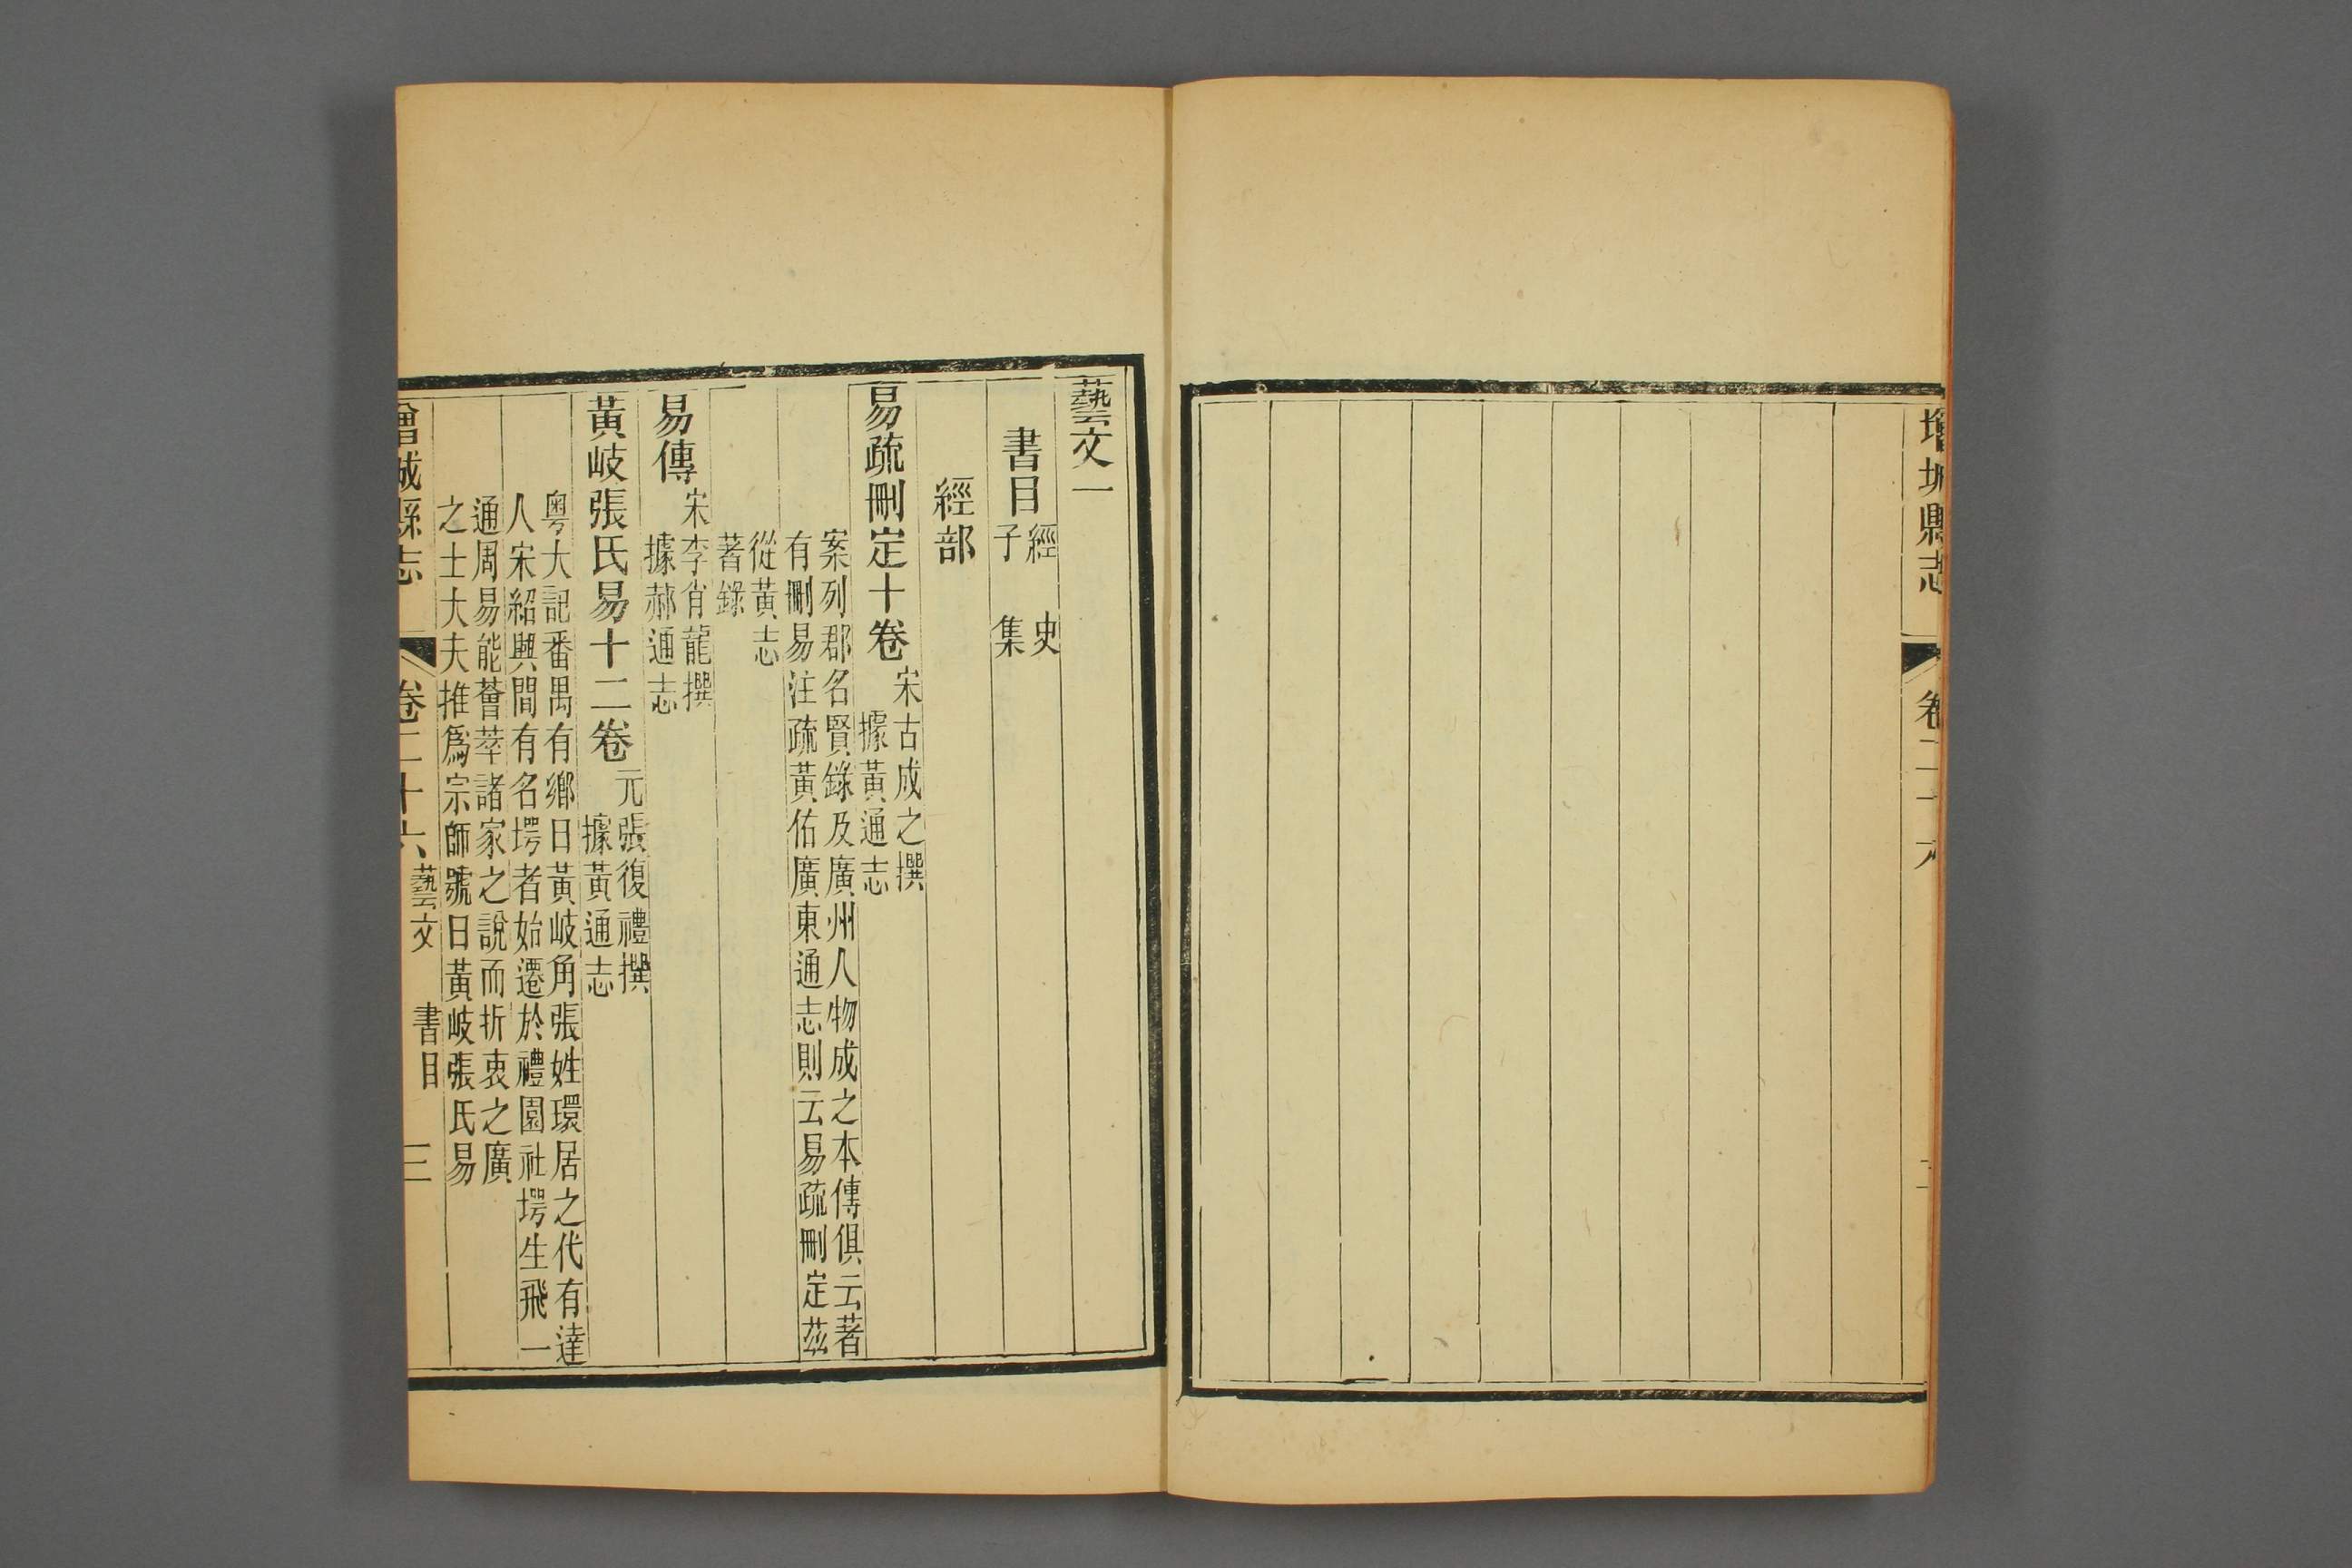 增城縣志
卷二十六
藝文一
書目
經 史
子 集
經部
易疏刪定十卷
宋古成之撰
據黃通志
案列郡名賢錄及廣州人物成之本傳俱云著
有刪易注疏黃佑廣東通志則云易疏刪定茲
從黃志
著錄
易傳
宋李肖龍撰
據郝通志
黃岐張氏易十二卷
元張復禮撰
據黃通志
粵大記番禺有鄉曰黃岐角張姓環居之代有達
人宋紹興間有名堮者始遷於禮園社堮生飛一
通周易能薈萃諸家之說而折衷之廣
之士大夫推爲宗師號曰黃岐張氏易
增城縣志
卷二十六
藝文
書目
三